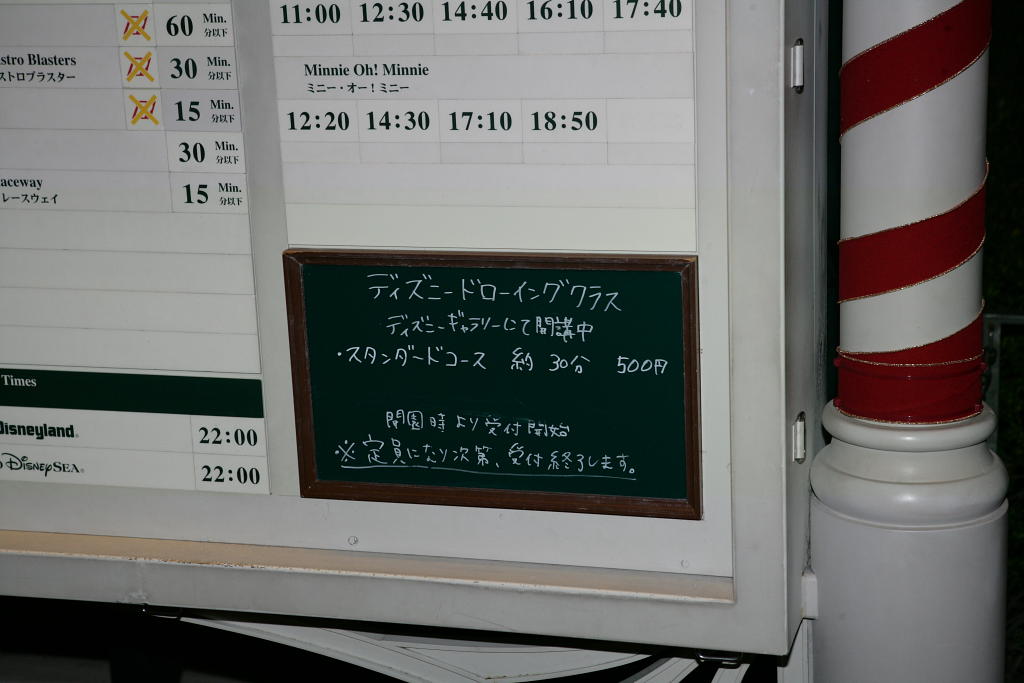 60 Min.
分以下
stro Blasters
ストロブラスター
30 Min.
分以下
15 Min.
分以下
30 Min.
分以下
aceway
レースウェイ
15 Min.
分以下
Times
Disneyland®
22:00
DISNEYSEA®
22:00
11:00 12:30 14:40 16:10 17:40
Minnie Oh! Minnie
ミニー・オー!ミニー
12:20 14:30 17:10 18:50
ディズニードローイングクラス
ディズニーギャラリーにて開講中
・スタンダードコース 約30分 500円
開園時より受付開始
※定員になり次第、受付終了します。